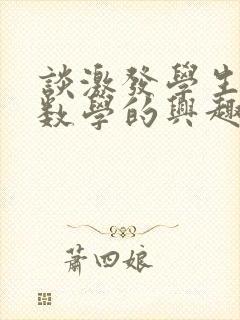 談激發學生
数學的興趣
蕭四娘